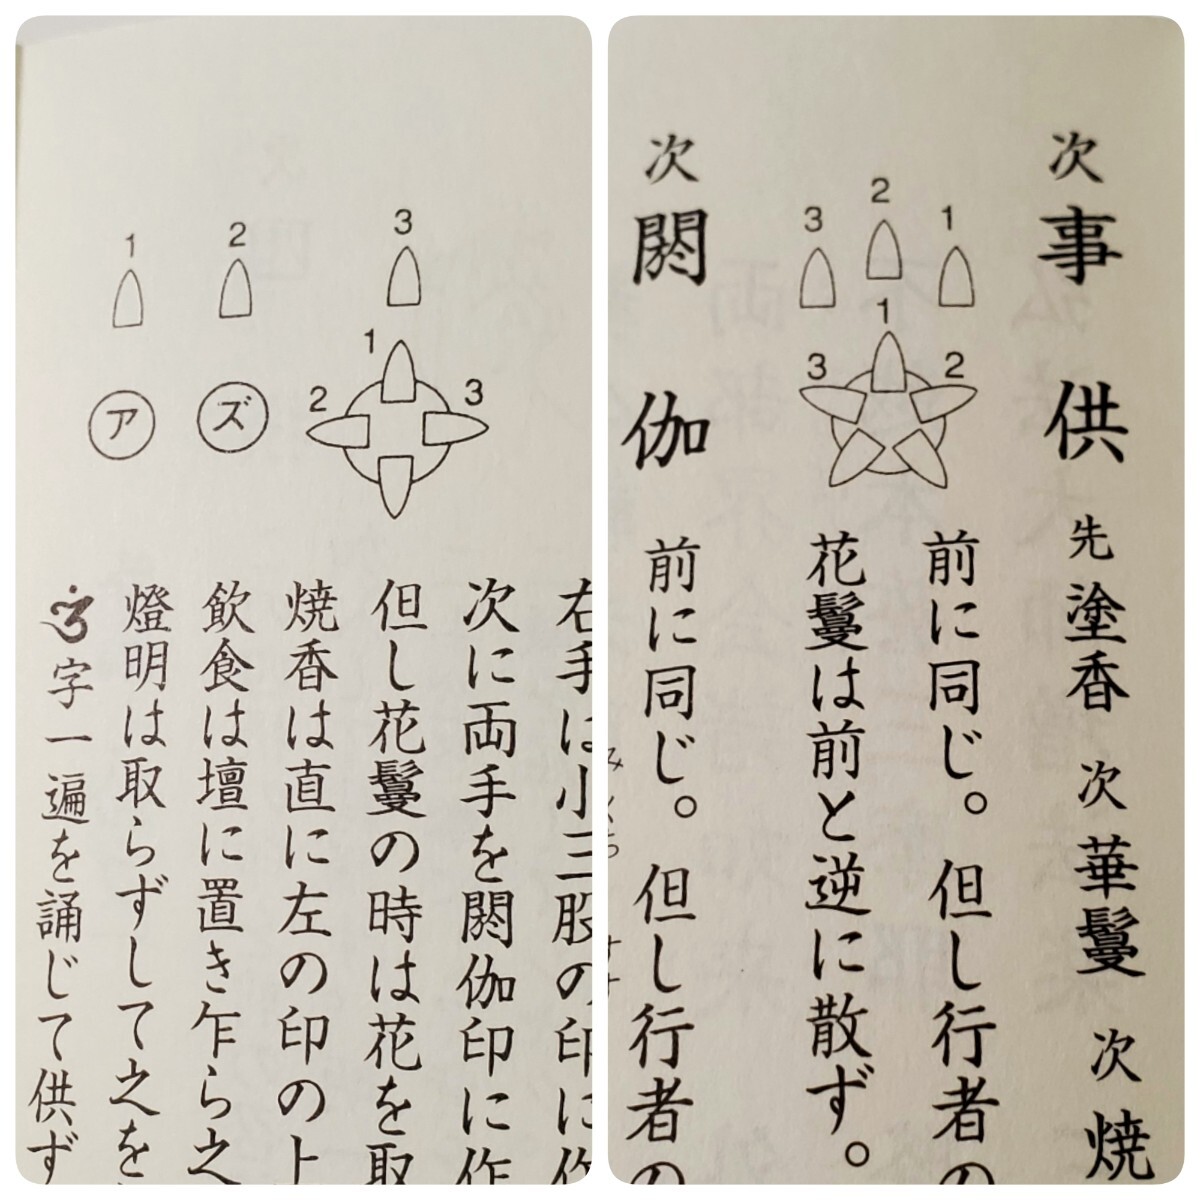 右手は小三股の印に作
次に両手を閼伽印に作
3
1
2
3
但し花鬘の時は花を取
焼香は直に左の印の上
2
ズ
飲食は壇に置き乍ら之
1
ア
燈明は取らずして之を
字一遍を誦じて供ず
次 事供 先 塗香 次 華鬘 次 焼
1
2
3
1
2
3
前に同じ。但し行者の
花鬘は前と逆に散ず。
次 閼伽
前に同じ。但し行者の